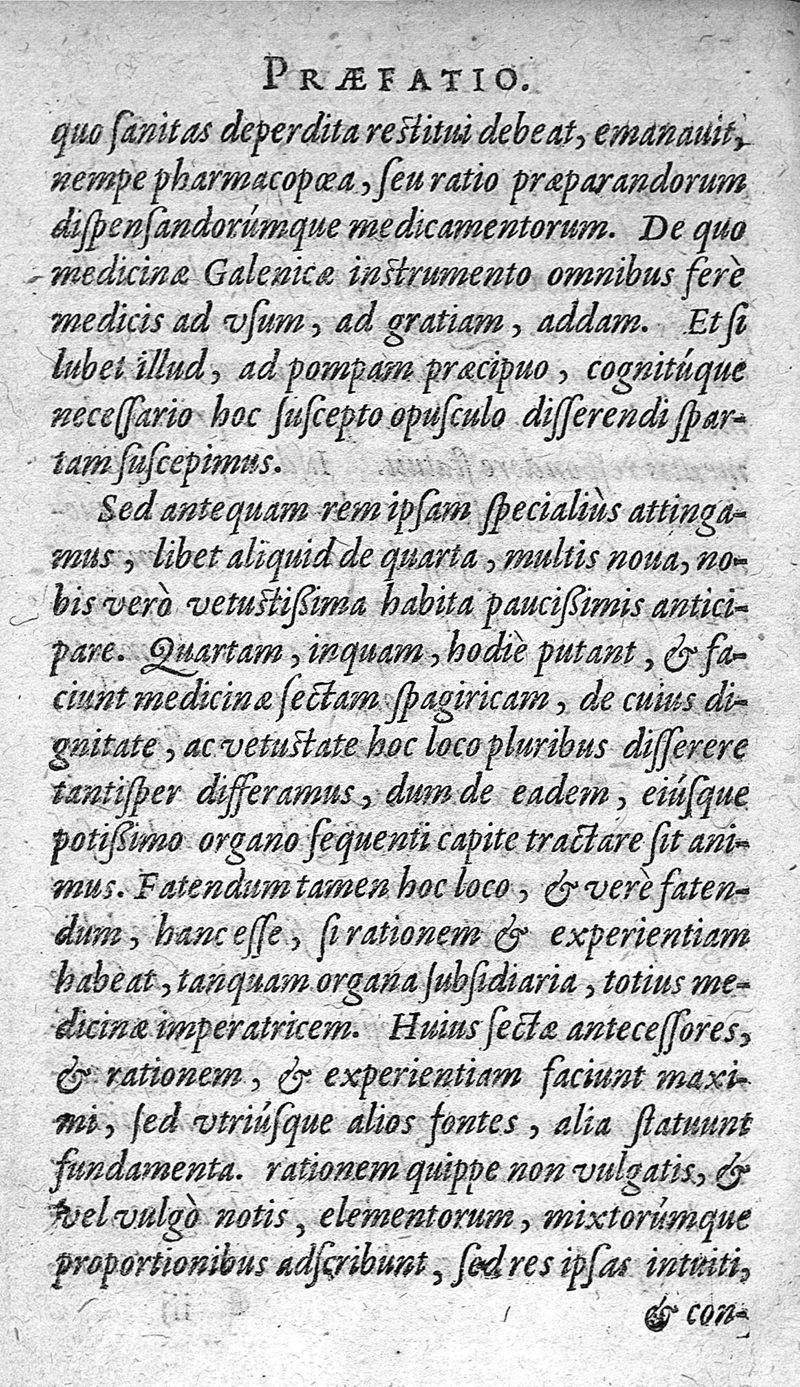 PRÆFATIO.
quo ſanitas deperdita reſtitui debeat, emanauit,
nempe pharmacopœa, ſeu ratio præparandorum
diſpenſandorúmque medicamentorum. De quo
medicinæ Galenicæ inſtrumento omnibus ferè
medicis ad vſum, ad gratiam, addam. Et ſi
lubet illud, ad pompam præcipuo, cognitúque
neceſſario hoc ſuſcepto opuſculo diſſerendi ſpar-
tam ſuſcepimus.
Sed antequam rem ipſam ſpecialiùs attinga-
mus, libet aliquid de quarta, multis noua, no-
bis verò vetuſtißima habita pauciſsimis antici-
pare. Quartam, inquam, hodiè putant, & fa-
ciunt medicinæ ſectam ſpagiricam, de cuius di-
gnitate, ac vetuſtate hoc loco pluribus diſſerere
tantiſper differamus, dum de eadem, eiúſque
potißimo organo ſequenti capite tractare ſit ani-
mus. Fatendum tamen hoc loco, & verè faten-
dum, hanc eſſe, ſi rationem & experientiam
habeat, tanquam organa ſubſidiaria, totius me-
dicinæ imperatricem. Huius ſectæ anteceſſores,
& rationem, & experientiam faciunt maxi-
mi, ſed vtriúſque alios fontes, alia ſtatuunt
fundamenta. rationem quippe non vulgatis, &
vel vulgò notis, elementorum, mixtorúmque
proportionibus adſcribunt, ſed res ipſas intuiti,
& con-